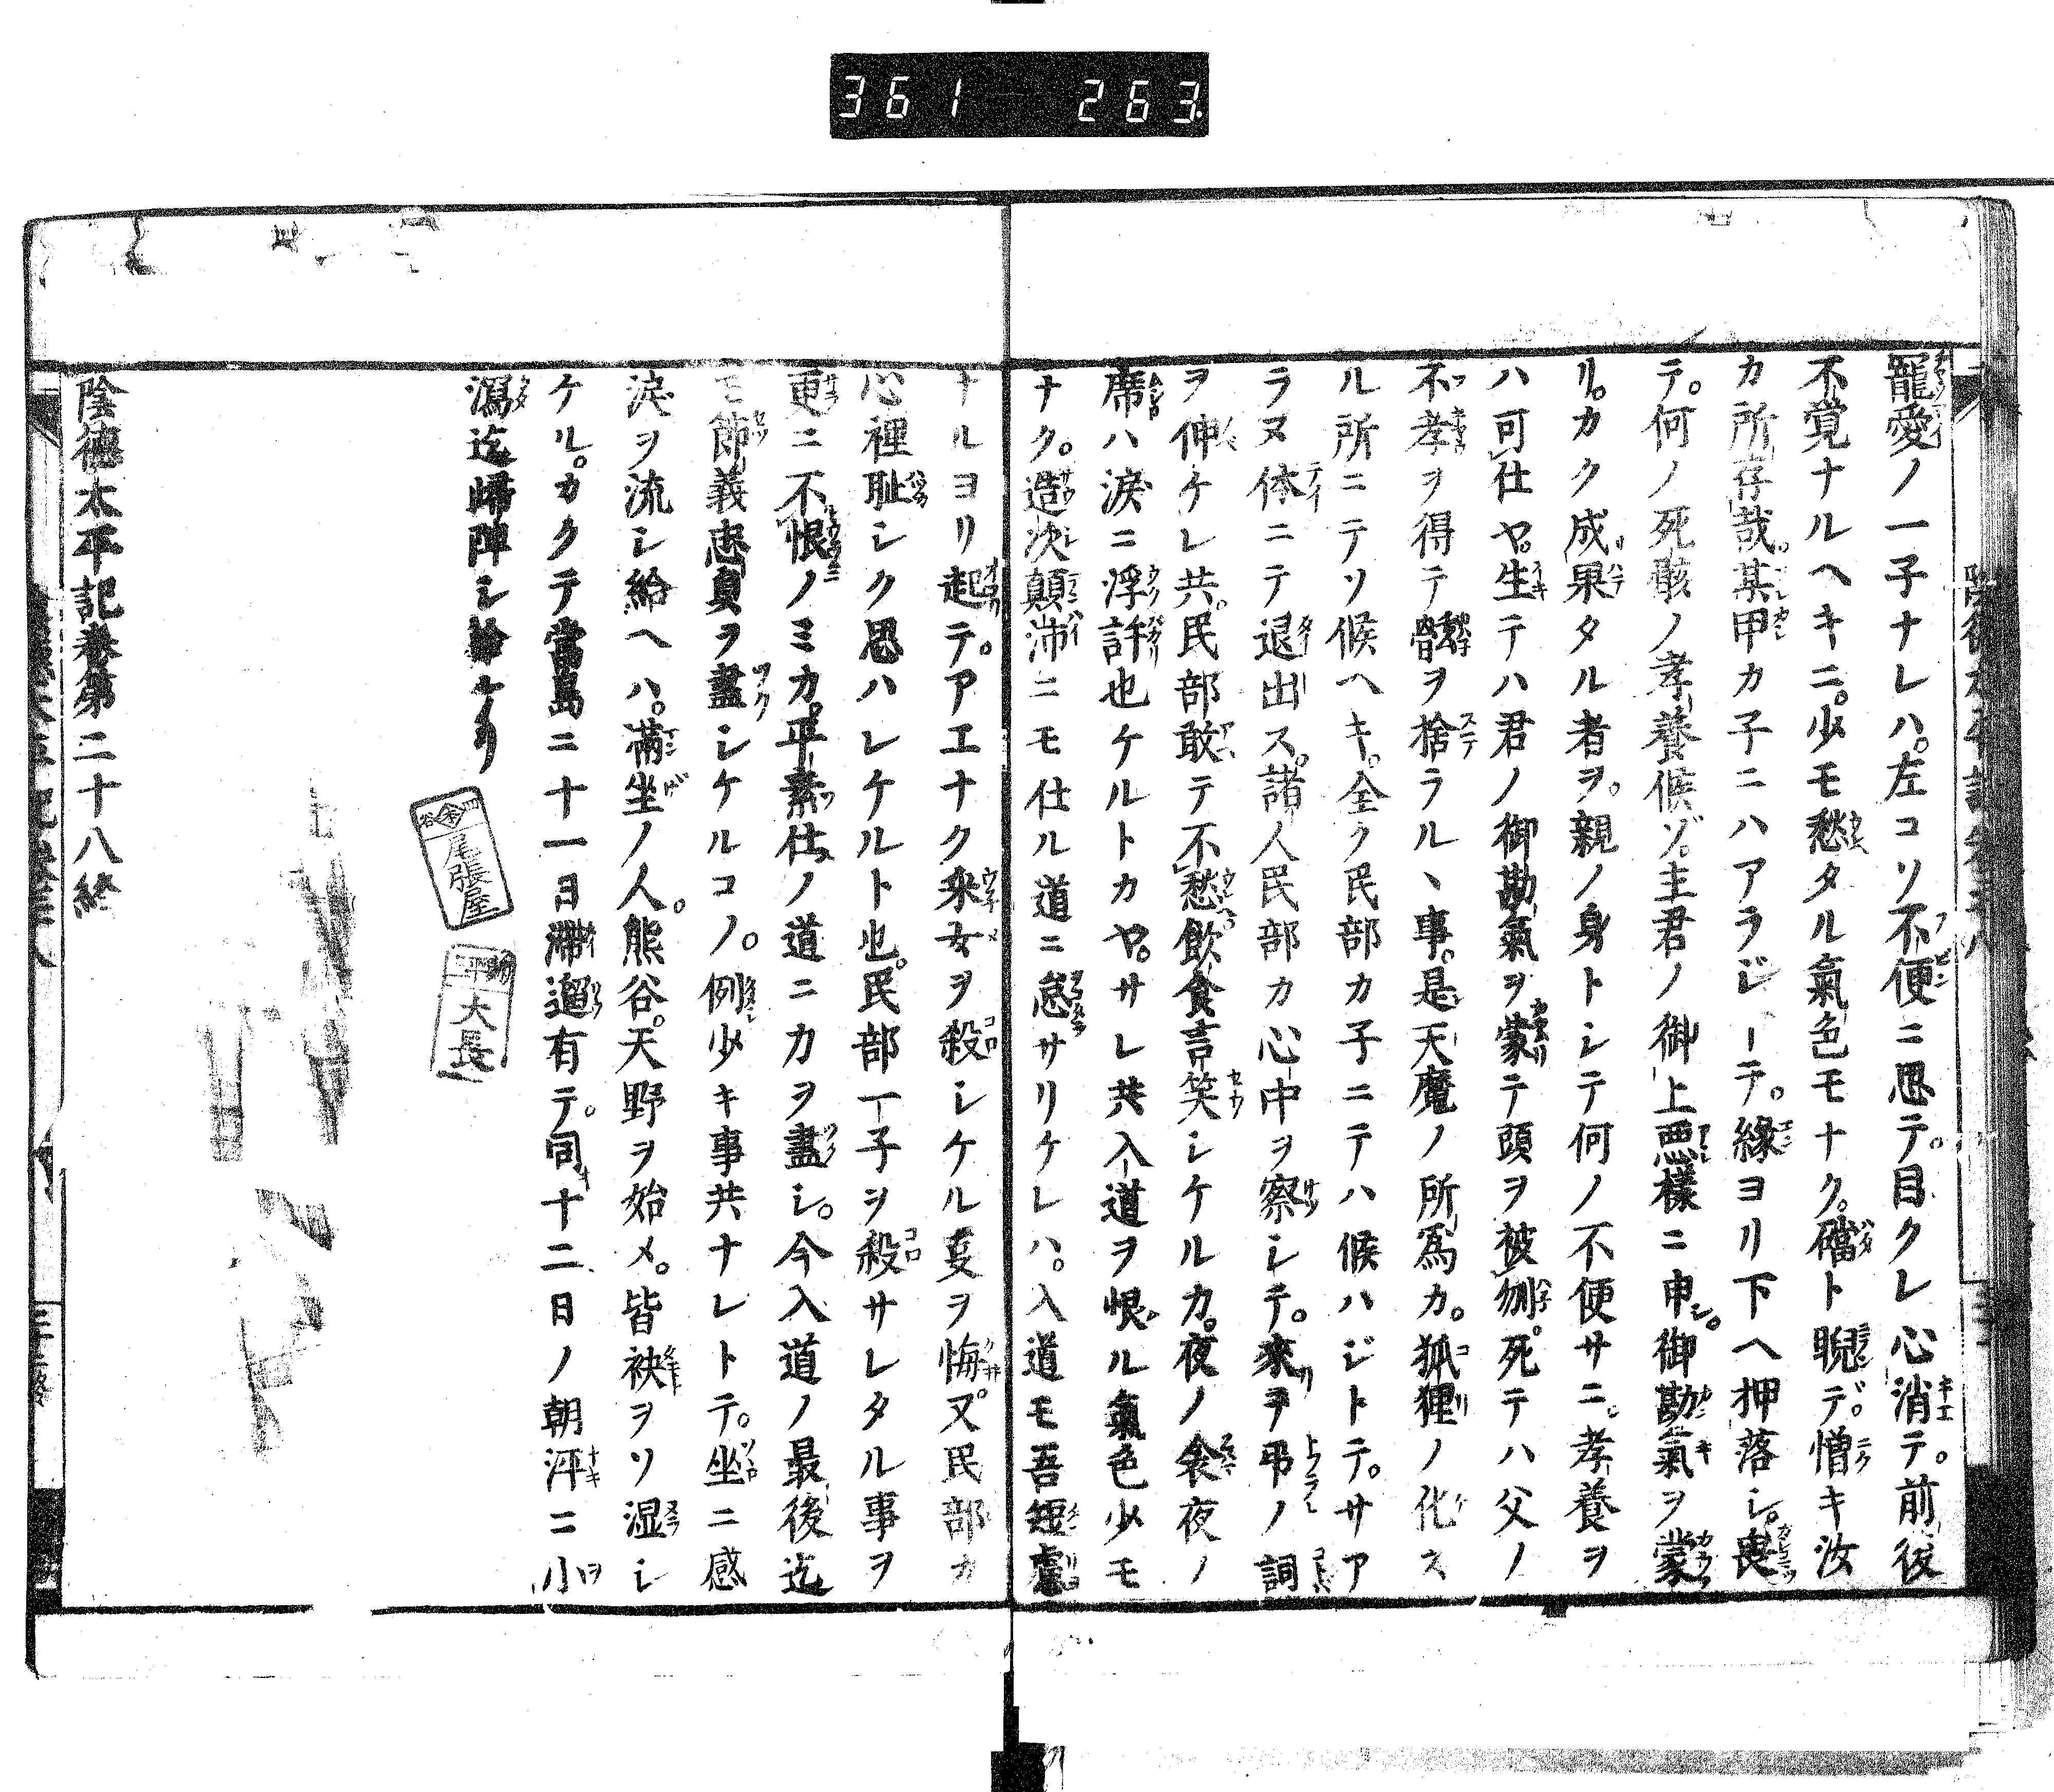 361 263
寵愛ノ一子ナレハ。左コソ不便ニ思テ。目クレ心消テ。前後
不覚ナルヘキニ。少モ愁タル氣色モナク。礑ト睨デ。憎キ汝
カ所存哉。某甲カ子ニハアラジーテ。縁ヨリ下ヘ押落シ。喪
テ。何ノ死骸ノ孝養候ゾ。主君ノ御上悪樣ニ申シ。御勘氣ヲ蒙
リ。カク成果タル者ヲ。親ノ身トシテ何ノ不便サニ。孝養ヲ
ハ可仕ヤ。生テハ君ノ御勘氣ヲ蒙テ頭ヲ被刎。死テハ父ノ
不孝ヲ得テ髊ヲ捨ラルヽ事。是天魔ノ所爲カ。狐狸ノ化ス
ル所ニテソ候ヘキ。全ク民部カ子ニテハ候ハジトテ。サア
ラヌ体ニテ退出ス。諸人民部カ心中ヲ察シテ。來テ弔ノ詞
ヲ伸ケレ共。民部敢テ不愁飲食言笑シケルカ。夜ノ衾夜ノ
席ハ淚ニ浮許也ケルトカヤ。サレ共入道ヲ恨ル氣色少モ
ナク。造次顛沛ニモ仕ル道ニ怠サリケレハ。入道モ吾短慮
ナルヨリ起テ。アエナク采女ヲ殺シケル亊ヲ悔。又民部カ
心裡耻シク思ハレケルト也。民部一子ヲ殺サレタル事ヲ
更ニ不恨ノミカ。平素仕ノ道ニカヲ盡シ。今入道ノ最後迄
モ節義忠貞ヲ盡シケルコノ。例少キ事共ナレトテ。坐ニ感
淚ヲ流シ給ヘハ。滿坐ノ人。熊谷。天野ヲ始メ。皆袂ヲソ湿シ
ケル。カクテ當島ニ十一日滯遛有テ。同十二日ノ朝泙ニ小
瀉迄歸陣シ給ケリ
尾張屋
大長
陰德太平記卷第二十八終